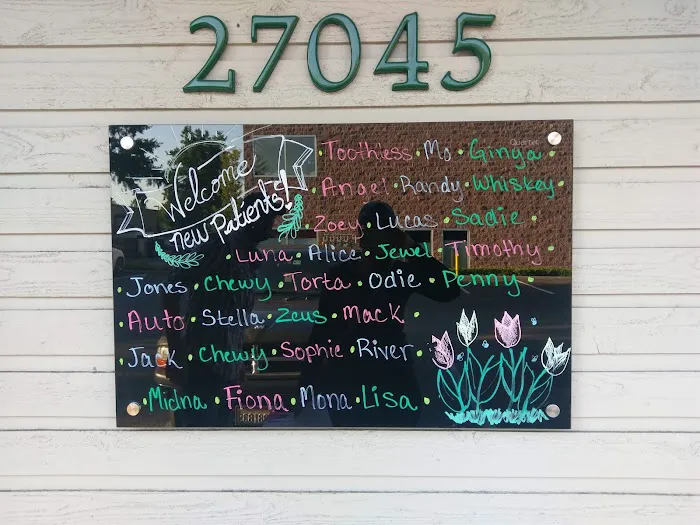 27045
Quartet
Welcome
new Patients!
Toothless • Mo • Ginya •
Angel • Randy • Whiskey •
Zoey • Lucas • Sadie •
• Luna • Alice • Jewel • Timothy •
• Jones • Chewy • Torta • Odie • Penny •
• Auto • Stella • Zeus • Mack •
• Jack • Chewy • Sophie • River •
• Midna • Fiona • Mona • Lisa •